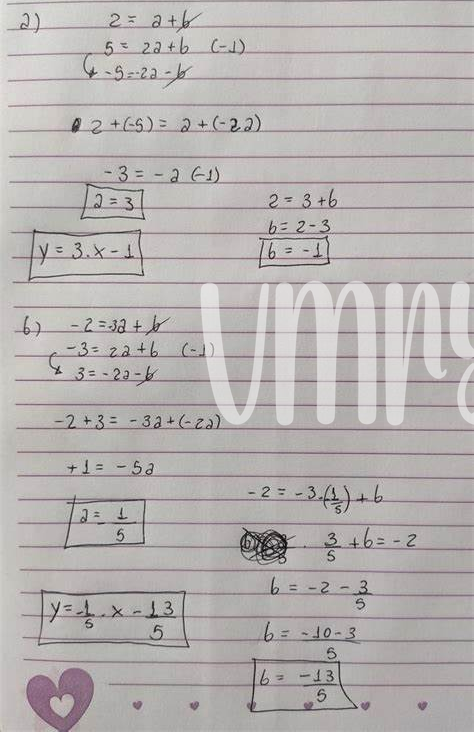 a) 2 = a+b
5 = 2a+b (-1)
-5=-2a-b
2+(-5) = a+(-2a)
-3 = -a (-1)
a = 3
2 = 3+b
b = 2-3
b = -1
y = 3.x-1
b) -2=-3a+b
-3= 2a+b (-1)
3= -2a-b
-2+3= -3a+(-2a)
+1= -5a
a=-1/5
-2 = -3.(-1/5)+b
3/5 +b=-2
b = -2 - 3/5
b = -10-3/5
b = -13/5
y=-1/5 .x -13/5
vmry